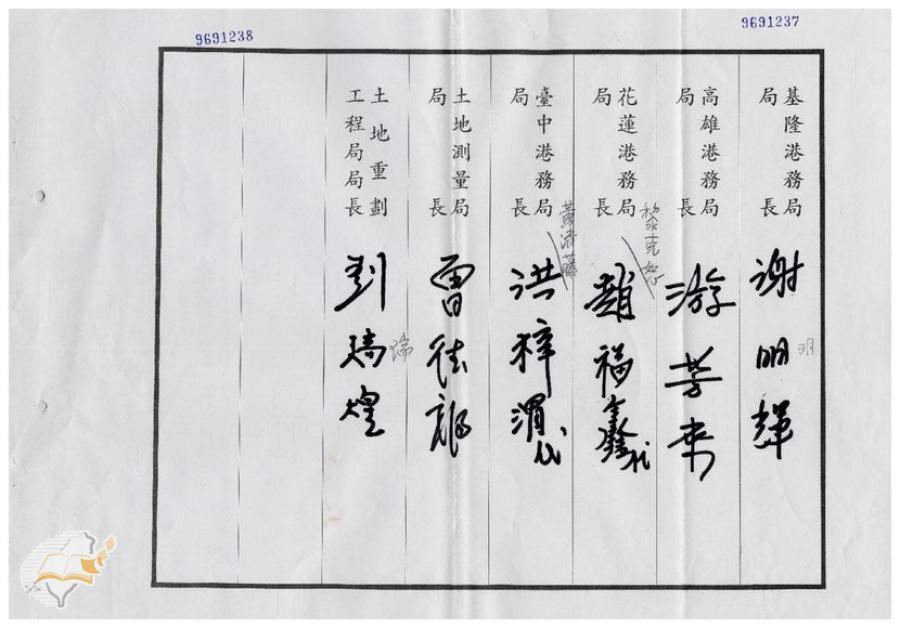 9691237
9691238
基隆港務局
局長
謝明輝
明
高雄港務局
局長
游芳來
花蓮港務局
局長
黎克恕
趙福鑫代
臺中港務局
局長
黃清藤
洪梓渭代
土地測量局
局長
曹德福
土地重劃
工程局局長
劉瑞煌
瑞